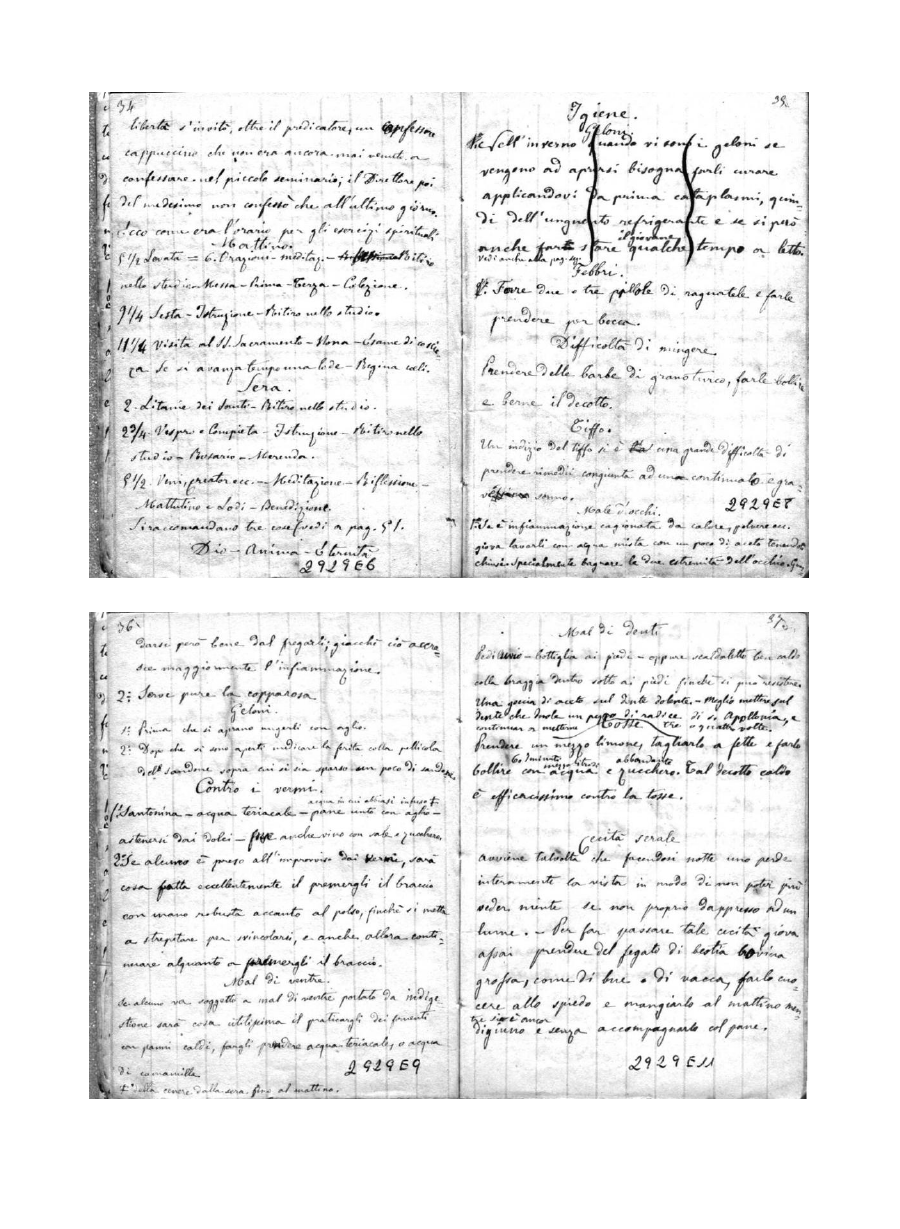 34
libertà s'invitò, oltre il predicatore, un confessore
cappuccino che non era ancora mai venuto a
confessare nel piccolo seminario; il Direttore poi
del medesimo non confessò che all'ultimo giorno.
Ecco come era l'orario per gli esercizi spirituali.
Mattino.
5 1/2 Levata = 6. Orazione - meditaz. - Ritiro
nello studio - Messa - Prima - Terza - Colezione.
9 1/4 Sesta - Istruzione - Ritiro nello studio.
11 1/4 Visita al SS. Sacramento - Nona - Esame di coscie-
za se si avanza tempo una lode - Regina coeli.
Sera.
2. Litanie dei Santi - Ritiro nello studio.
2 3/4 Vespro e Compieta - Istruzione - Ritiro nello
studio - Rosario - Merenda.
5 1/2. Veni, creator ecc. - Meditazione - Riflessione -
Mattutino e Lodi - Benedizione.
Si raccomandano tre cose (vedi a pag. 51.
Dio - Anima - Eternità
2929E6
35.
Igiene.
Geloni.
Nell'inverno quando vi sono i geloni se
vengono ad aprirsi bisogna farli curare
applicandovi da prima cataplasmi, quin-
di dell'unguento refrigerante e se si può
anche farte stare il giovane qualche tempo a letto.
Vedi anche alla pag. seg.
Febbri.
1°. Fare due o tre pillole di ragnatele e farle
prendere per bocca.
Difficoltà di mingere
Prendere delle barbe di granoturco, farle bollire
e berne il decotto.
Tiffo.
Un indizio del tiffo si è una grande difficoltà di
prendere rimedii congiunta ad una continuato e gra-
ve sonno.
2929E8
Male d'occhi.
1° Se è infiammazione cagionata da calore, polvere ecc.
giova lavarli con acqua mista con un poco di aceto tenendoli
chiusi. Specialmente bagnare le due estremità dell'occhio. Guar-
36
darsi però bene dal fregarli; giacchè ciò accre-
sce maggiormente l'infiammazione.
2° Serve pure la copparosa.
Geloni.
1° Prima che si aprano ungerli con aglio.
2° Dopo che si sono aperti medicare la ferita colla pellicola
sopra cui si sia sparso un poco di
Contro i vermi.
acqua in cui abbiasi infuso ‡
1° Santonina - acqua teriacale - pane unto con aglio -
astenersi dai dolci - anche vivo con sale e zucchero.
2° Se alcuno è preso all'improvviso dai vermi, sarà
cosa fatta eccellentemente il premergli il braccio
con mano robusta accanto al polso, finchè si metta
a strepitare per svincolarsi, e anche allora conti-
nuare alquanto a premergli il braccio.
Mal di ventre.
Se alcuno va soggetto a mal di ventre portato da indige
stione sarà cosa utilissima il praticargli dei fomenti
con panni caldi, fargli prendere acqua teriacale, o acqua
di camamilla
2929E9
‡ della cenere dalla sera fino al mattino.
37.
Mal di denti
Pediluvio - bottiglia ai piedi - oppure scaldaletto ben caldo
colla braggia dentro sotto ai piedi finchè si può resistere.
Una goccia di aceto sul dente dolente. - Meglio mettere sul
dente che duole un pezzo di radice di S. Appollonia, e
continuar a metterne tre o quattro volte.
Tosse
Prendere un mezzo limone, tagliarlo a fette e farlo
bollire con acqua e zucchero. Tal decotto caldo
è efficacissimo contro la tosse.
Cecità serale
avviene talvolta che facendosi notte uno perde
interamente la vista in modo di non poter più
veder niente se non proprio dappresso ad un
lume. - Per far passare tale cecità giova
assai prendere del fegato di bestia bovina
grossa, come di bue o di vacca, farlo cuo-
cere allo spiedo e mangiarlo al mattino men-
tre si è ancor
digiuno e senza accompagnarlo col pane.
2929E11